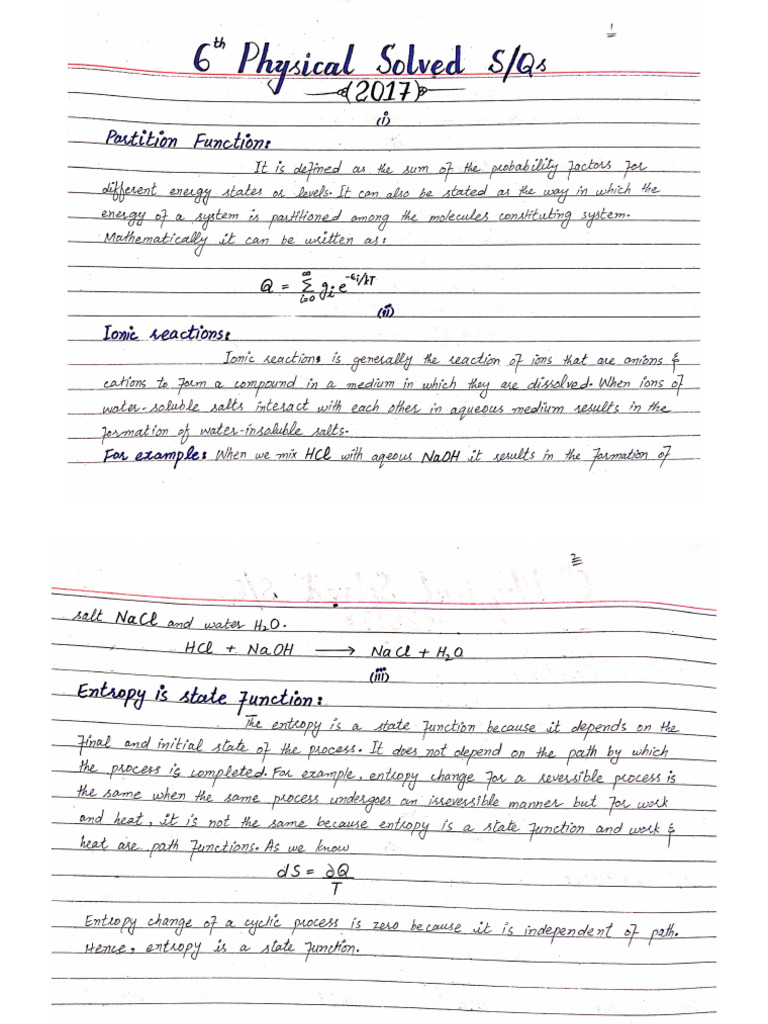 1
6th Physical Solved S/Qs
(2017)
(i)
Partition Function:
It is defined as the sum of the probability factors for
different energy states or levels. It can also be stated as the way in which the
energy of a system is partitioned among the molecules constituting system.
Mathematically it can be written as:
Q = ∞Σi=0 gi e^-εi/kT
(ii)
Ionic reactions:
Ionic reactions is generally the reaction of ions that are anions &
cations to form a compound in a medium in which they are dissolved. When ions of
water-soluble salts interact with each other in aqueous medium results in the
formation of water-insoluble salts.
For example: When we mix HCl with aqeous NaOH it results in the formation of
2
salt NaCl and water H₂O.
HCl + NaOH ⟶ NaCl + H₂O
(iii)
Entropy is state function:
The entropy is a state function because it depends on the
final and initial state of the process. It does not depend on the path by which
the process is completed. For example, entropy change for a reversible process is
the same when the same process undergoes an irreversible manner but for work
and heat, it is not the same because entropy is a state function and work &
heat are path functions. As we know
dS = ∂Q
T
Entropy change of a cyclic process is zero because it is independent of path.
Hence, entropy is a state function.